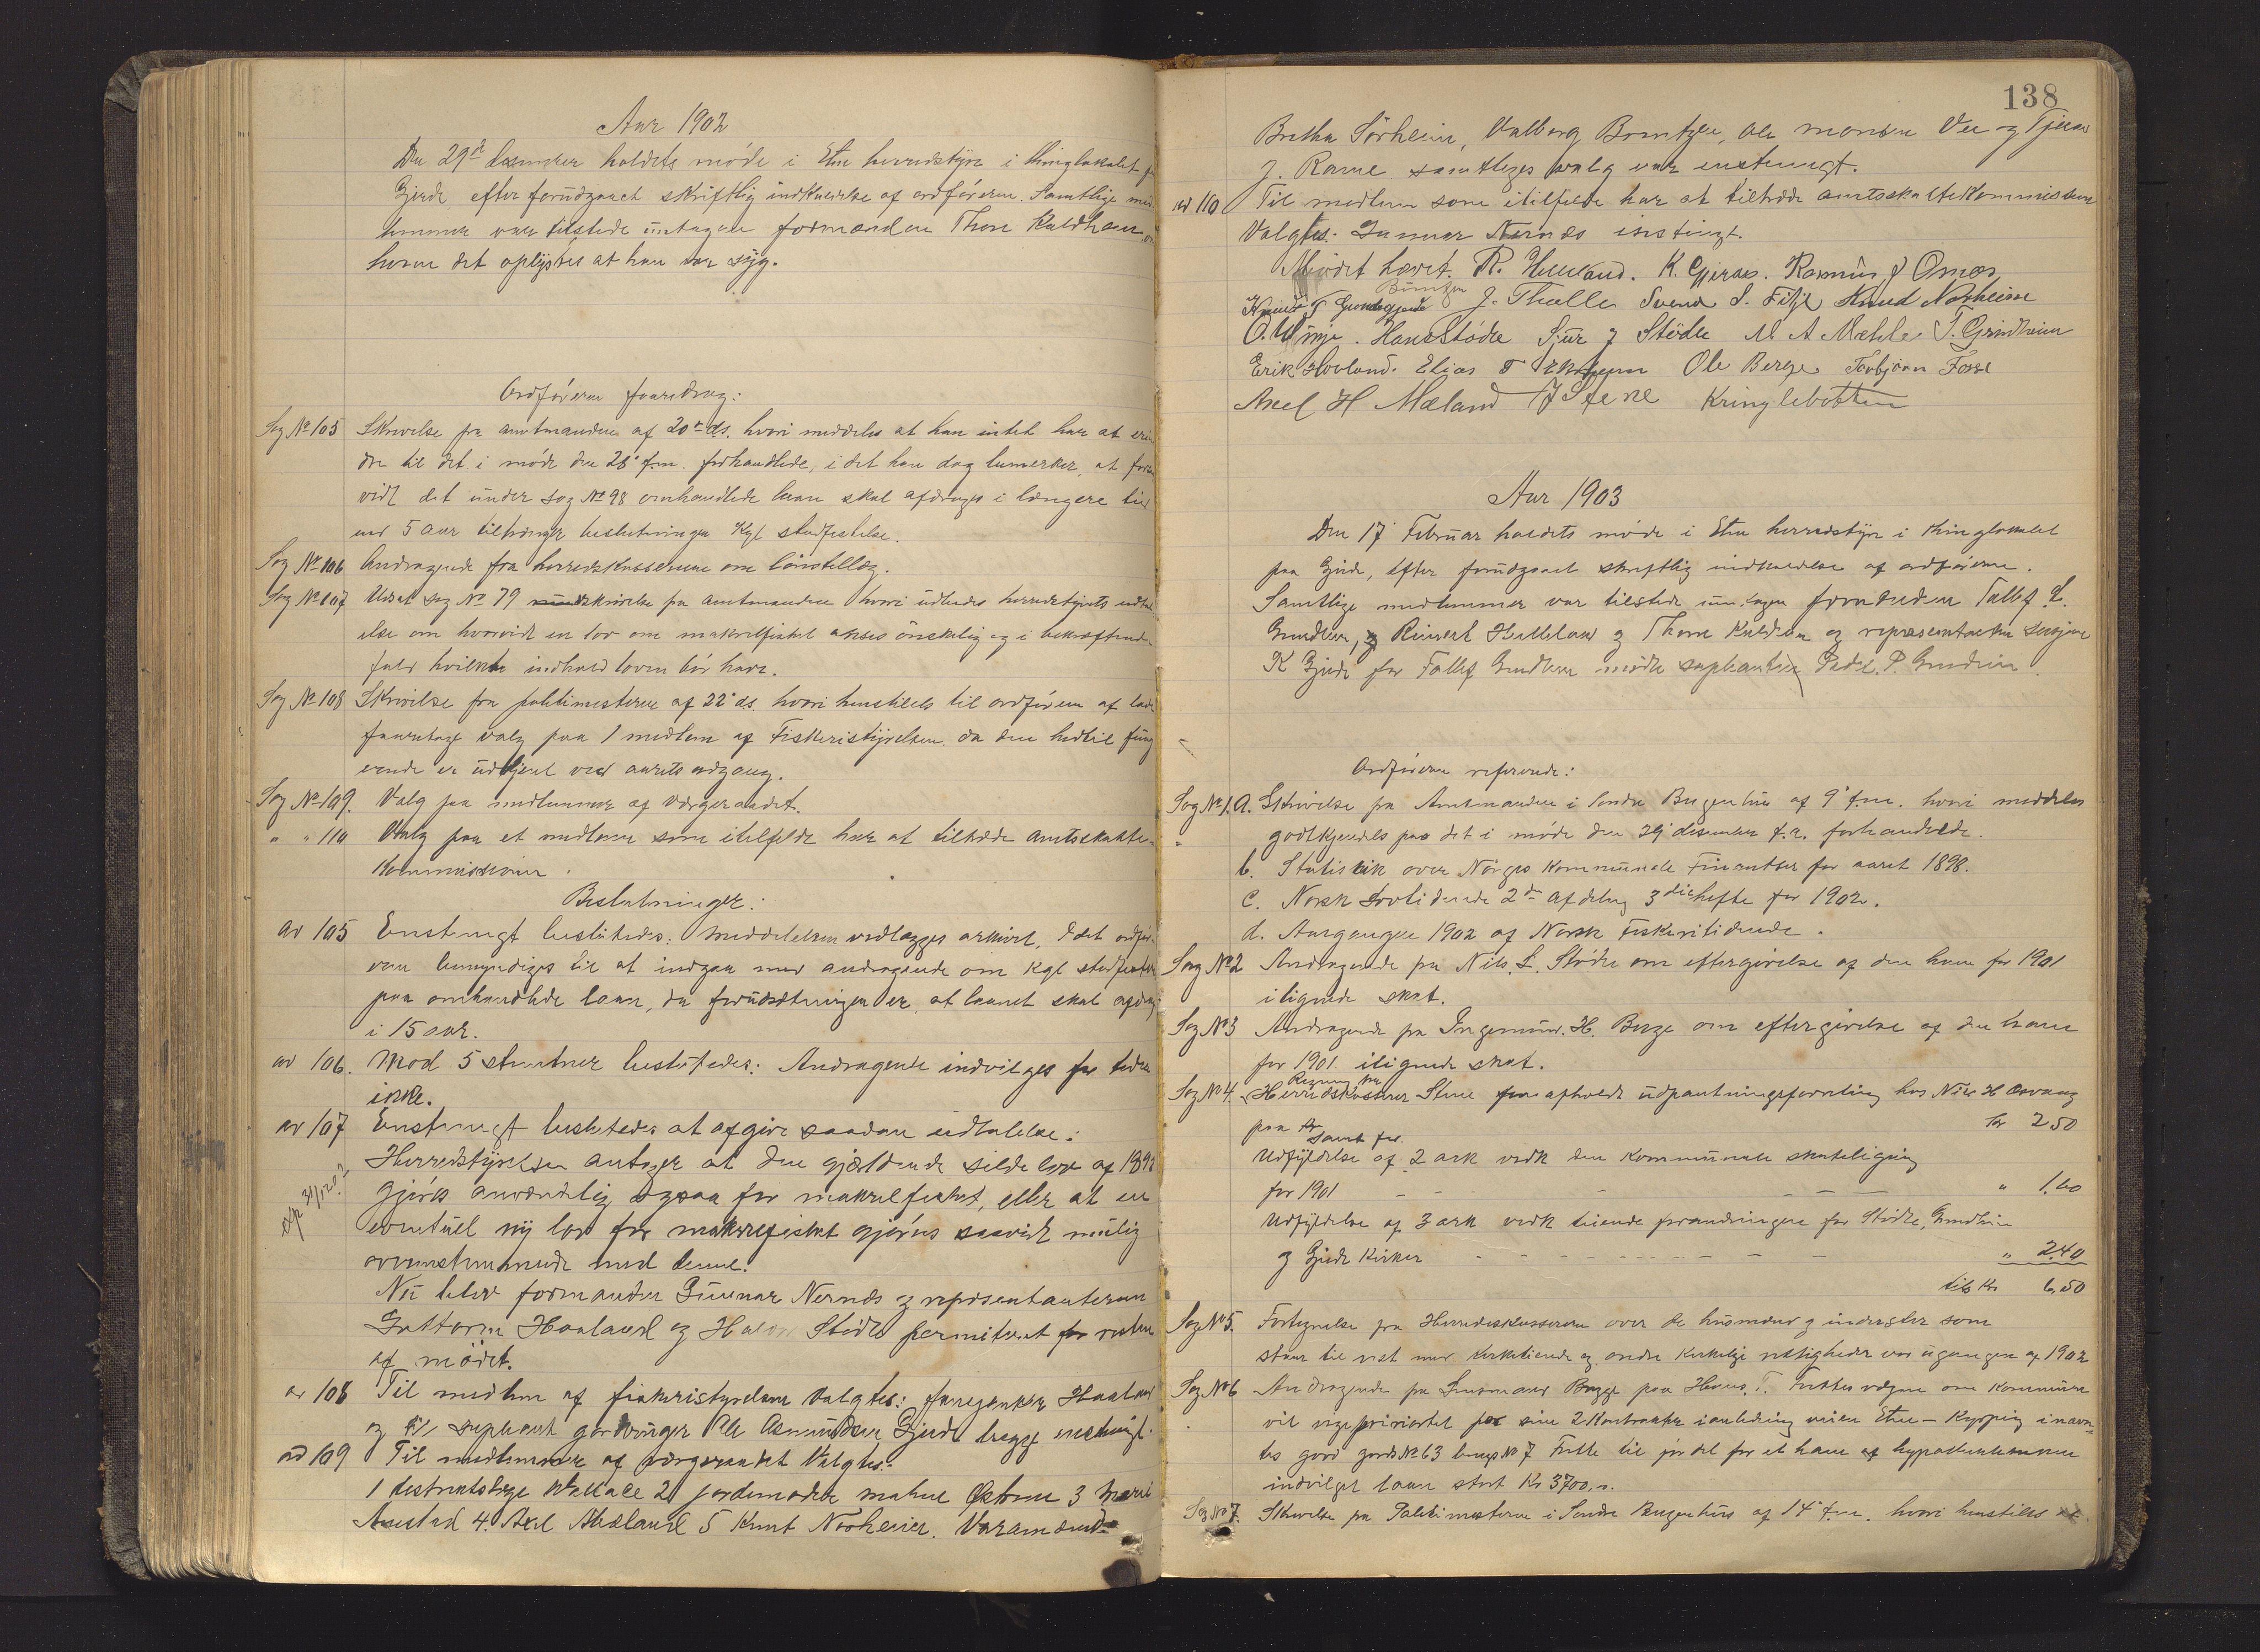 Aar 1902
Den 29de desember holdtes møde i Etne herredstyre i thinglokalet paa
Gjerde efter forudgaaet skriftlig indkaldelse af ordføreren. Samtlige med
lemmer var tilstede untagen formanden Thore Kaldheim, om
hvem det oplystes at han var syg.
Ordføreren foredrog:
Sag No 105 Skrivelse fra amtmanden af 20de ds. hvori meddeles at han intet har at erin
dre til det i møde den 28' f.m. forhandlede, i det han dog bemerker, at forsaa
vidt det under sag No 98 omhandlede laan skal afdrages i længere tid
end 5 aar tiltrænger beslutningen Kgl stadfestelse.
Sag No 106 Andragende fra herredskassereren om lønstillæg.
Sag No 107 Udsat sag No 79 skrivelse fra amtmanden hvori udbedes herredstyrets udtal
else om hvorvidt en lov om makrelfisket ansees ønskelig og i bekræftende
fald hvilket indhold loven bør have.
Sag No 108 Skrivelse fra politimesteren af 22' ds. hvori henstilles til ordføreren at lade
foretage valg paa 1 medlem af Fiskeristyrelsen, da den hidtil fung
erende er udtjent ved aarets udgang.
Sag No 109. Valg paa medlemmer af værgeraadet.
" " 110 Valg paa et medlem som i tilfelde har at tiltræde amtsskatte-
kommissionen
Beslutninger:
ad 105 Enstemigt besluttedes: Meddelelsen vedlægges arkivet, idet ordfør-
eren bemyndiges til at indgaa med andragende om Kgl stadfestelse
paa omhandlede laan, da forudsætningen er, at laanet skal afdrag.
i 15 aar.
ad 106. Mod 5 stemmer besluttedes: Andragende indvilges for tiden
ikke.
ad 107 Enstemigt besluttedes at afgive saadan udtalelse:
Exp 31/12 02
Herredstyrelsen antager at den gjældende silde lov af 1892
gjøres anvendelig ogsaa for makrelfisket, eller at en
eventuel ny lov for makrelfisket gjøres saavidt mulig
overenstemmende med denne.
Nu blev formanden Gunnar Nernæs og representanterne
Guttorm Haaland og Halvor Stødle permiteret for resten
af mødet.
ad 108 Til medlem af fiskeristyrelsen valgtes: Haaland
og til supleant gardbruger Ole Asmundsen Gjerde begge enstemigt.
ad 109 Til medlemmer af værgeraadet valgtes:
1 destriktslæge Wallace 2 jordemoder 3
4. Axel Mæland 5 Knut Norheim. Varamænd:
138
Bretha Sørheim, Valborg Brentzen, Ole monsen Vee og
J. Rame samtliges valg var enstemigt.
ad 110 Til medlem som i tilfelde har at tiltræde amtsskattekommissionen
Valgtes: Gunnar Nernæs enstemigt.
Mødet hævet. R. Hetleland. K. Gjerde. Rasmus J Omes,
Knut T J. Thælle Svend S. Fitje Knud Norheim
O. Vinje. Hans Stødle Sjur J Stødle M A Mæhle T. Grindheim
Erik Hovland. Elias T Ole Berge Torbjørn Fosse
Axel H Mæland J Stene Kringlebotten
Aar 1903
Den 17' Februar holdtes møde i Etne herredstyre i thinglokalet
paa Gjerde, efter forudgaaet skriftlig indkaldelse af ordføreren.
Samtlige medlemmer var tilstede untagen formænden Tallef L.
Grindheim, og Reinert Hetleland og Thore Kaldheim og representanten
K Gjerde for Tallef Grindheim mødte supleanten Peder P. Grindheim.
Ordføreren refererede:
Sag No 1. a. Skrivelse fra Amtmanden i Søndre Bergenhus af 9' f.m. hvori meddeles
godkjendelse paa det i møde den 29' desember f.a. forhandlede.
b. Statistik over Norges kommunale Finantser for aaret 1898.
c. Norsk Lovtidende 2den afdeling 3die hefte for 1902.
d. Aargangen 1902 af Norsk Fiskeritidende.
Sag No 2 Andragende fra Nils L. Stødle om eftergivelse af den ham for 1901
ilignede skat.
Sag No 3 Andragende fra Ingemund H. Berge om eftergivelse af den ham
for 1901 ilignede skat.
Sag No 4. Regning fra Herredskasserer Stene for afholdt udpantningsforretning hos Nils H
paa kr samt for. kr 2.50
Udfyldelse af 2 ark vedk den kommunale skateligning
for 1901 - - - - " 1.60
Udfyldelse af 3 ark vedk tiende forandringer for Stødle, Grindheim
og Gjerde Kirker - - - - " 2.40
tils Kr 6.50
Sag No 5. Fortegnelse fra Herredskassereren over de husmænd og inderster som
staar til rest med kirketiende og andre kirkelige retigheder ved udgangen af 1902
Sag No 6 Andragende fra Lensmand Bagge paa Hans T. Futtes vegne om kommunen
vil vige prioritet for sine 2 kontrakter i anledning veien Etne - Kyrping i nævn-
tes gaard gards No 63 brugs No 7 Futte til fordel for et ham af hypothekbanken
indvilget laan stort Kr 3700.00.
Sag No 7. Skrivelse fra Politimesteren i Søndre Bergenhus af 14' f.m. hvori henstilles at